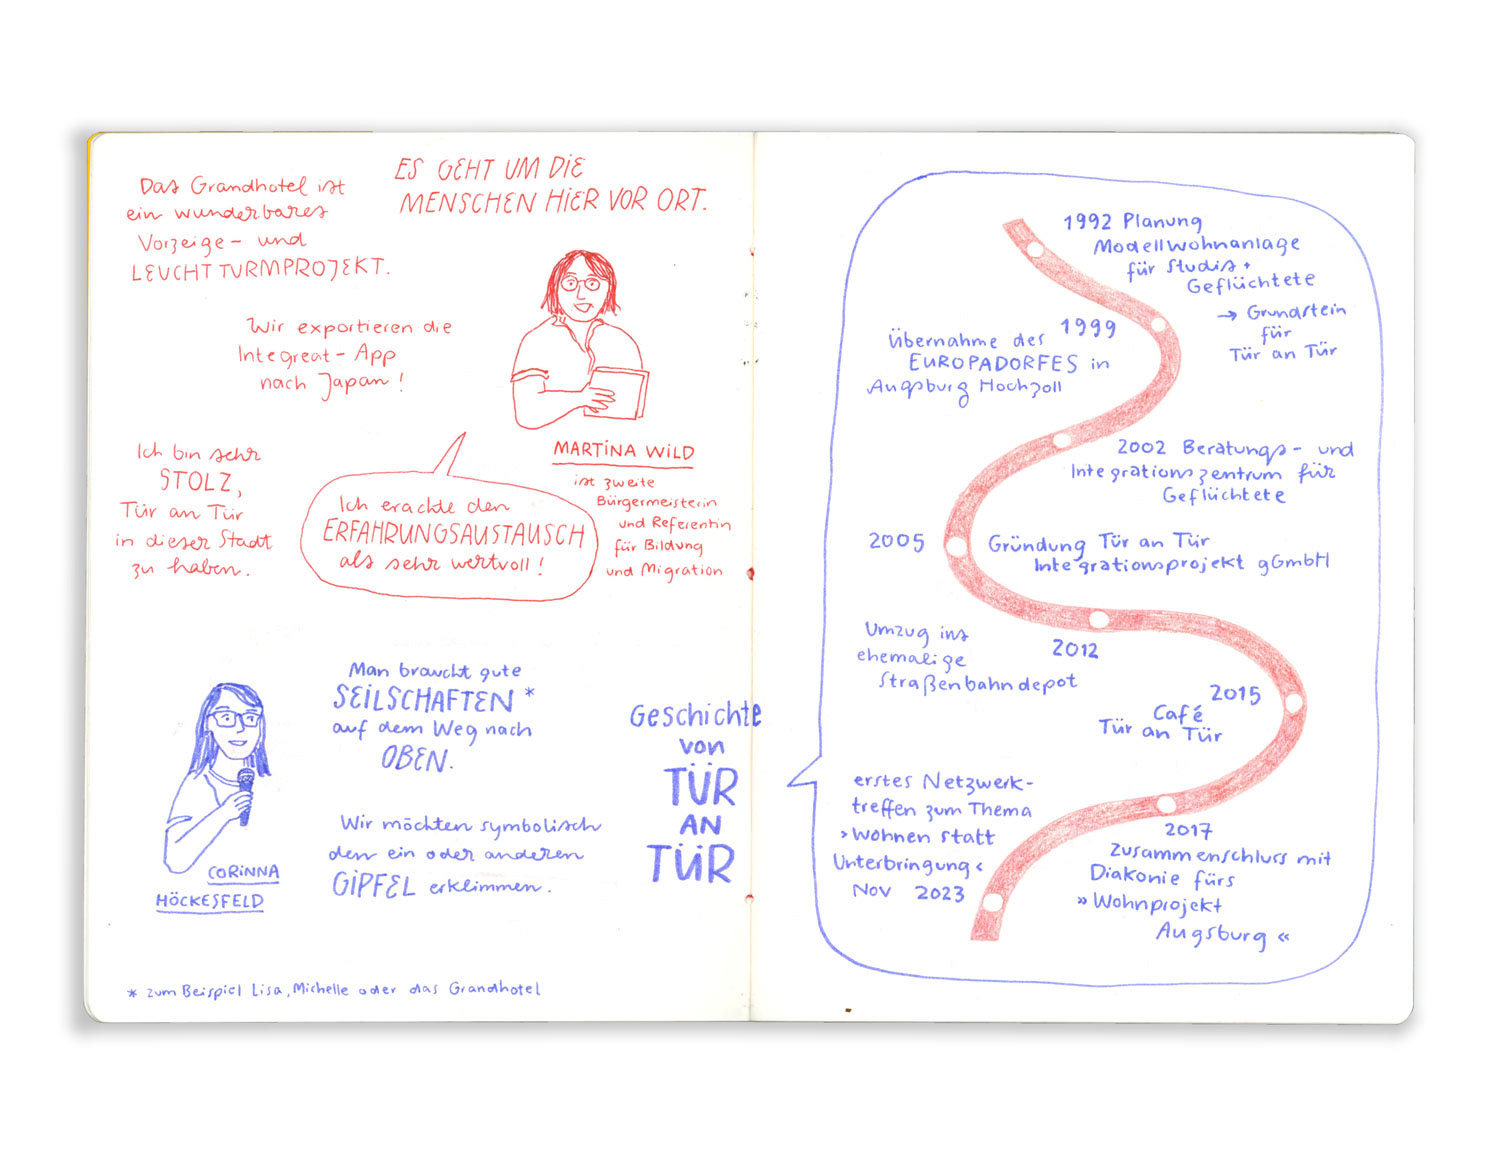 Das Grandhotel ist
ein wunderbares
Vorzeige- und
LEUCHTTURMPROJEKT.
ES GEHT UM DIE
MENSCHEN HIER VOR ORT.
Wir exportieren die
Integreat-App
nach Japan!
Ich bin sehr
STOLZ,
Tür an Tür
in dieser Stadt
zu haben.
Ich erachte den
ERFAHRUNGSAUSTAUSCH
als sehr wertvoll!
MARTINA WILD
ist zweite
Bürgermeisterin
und Referentin
für Bildung
und Migration
Man braucht gute
SEILSCHAFTEN *
auf dem Weg nach
OBEN.
Wir möchten symbolisch
den ein oder anderen
GIPFEL erklimmen.
CORINNA
HÖCKESFELD
* zum Beispiel Lisa, Michelle oder das Grandhotel
Geschichte
von
TÜR
AN
TÜR
1992 Planung
Modellwohnanlage
für Studis +
Geflüchtete
→ Grundstein
für
Tür an Tür
1999
Übernahme des
EUROPADORFES in
Augsburg Hochzoll
2002 Beratungs- und
Integrationszentrum für
Geflüchtete
2005 Gründung Tür an Tür
Integrationsprojekt gGmbH
Umzug ins
ehemalige
Straßenbahndepot
2012
2015
Café
Tür an Tür
2017
Zusammenschluss mit
Diakonie fürs
»Wohnprojekt
Augsburg«
erstes Netzwerk-
treffen zum Thema
›Wohnen statt
Unterbringung‹
Nov 2023